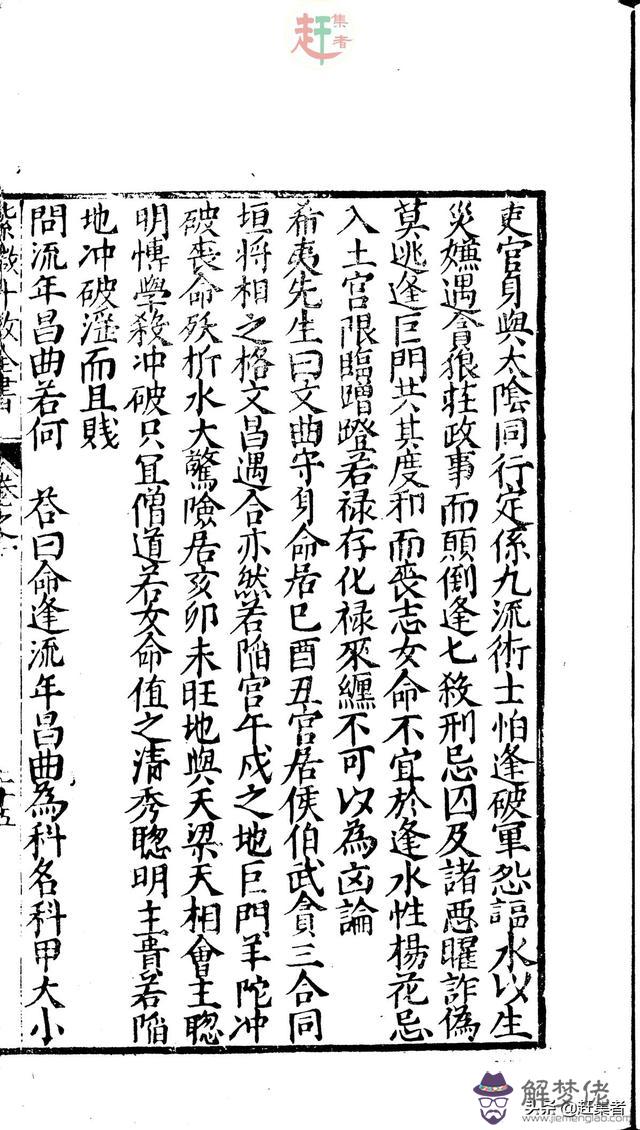 赶集者
吏官身與太陰同行定係九流術士怕逢破軍怨謳水以生
災嫌遇貪狼莊政事而顛倒逢七殺刑忌囚及諸惡曜詐偽
莫逃逢巨門共其度和而喪志女命不宜於逢水性楊花忌
入土宮限臨蹭蹬若祿存化禄來纏不可以為凶論
希夷先生曰文曲守身命居巳酉丑宮居侯伯武貪三合同
垣將相之格文昌遇合亦然若陷宮午戍之地巨門羊陀冲
破喪命殀折水大驚險居亥卯未旺地與天梁天相會主聡
明博學殺冲破只宜僧道若女命值之清秀聰明主貴若陷
地冲破滛而且賎
問流年昌曲若何　荅曰命逢流年昌曲為科名科甲大小
斗數全書
解梦佬
www.jiemenglab.com
头条@赶集者